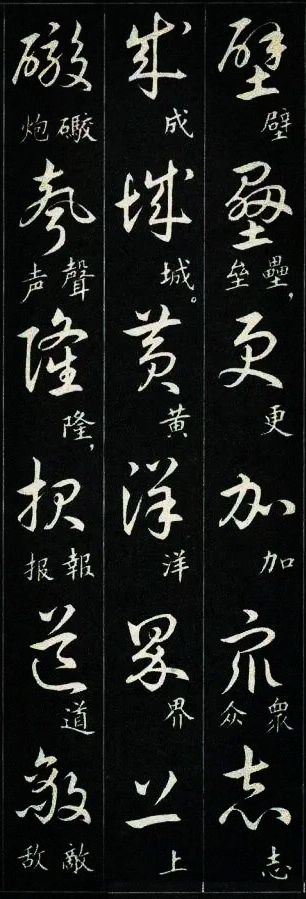 壁垒更加众志
壁 壘,垒 更 加 衆众 志
成城黄洋界上
成 城。 黄 洋 界 上
礮声隆报道敌
礮炮 聲声 隆, 報报 道 敵敌